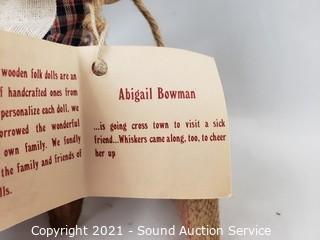 wooden folk dolls are an
f handcrafted ones from
personalize each doll, we
orrowed the wonderful
own family. We fondly
the family and friends of
lls.
Abigail Bowman
...is going cross town to visit a sick
friend...Whiskers came along, too, to cheer
her up
Copyright © 2021 - Sound Auction Service